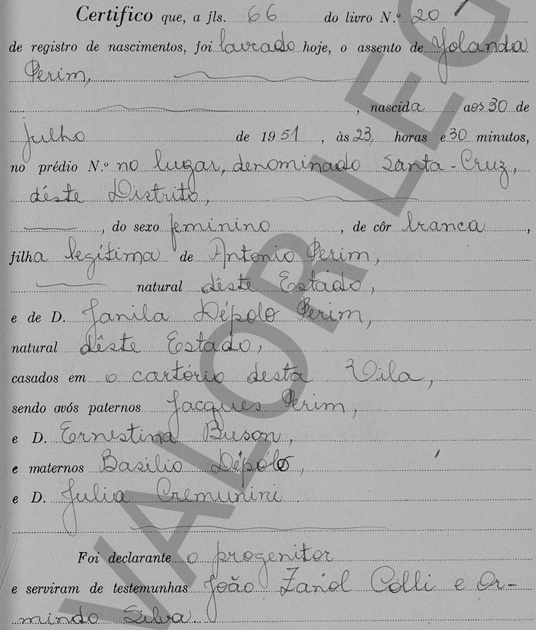 Certifico que, a fls. 66 do livro N.º 20
de registro de nascimentos, foi lavrado hoje, o assento de Yolanda
Perim,
, nascida aos 30 de
julho de 1951, às 23, horas e 30 minutos,
no prédio N.º no lugar, denominado Santa-Cruz,
dêste Distrito,
, do sexo feminino, de côr branca,
filha legítima de Antonio Perim,
natural dêste Estado,
e de D. Janila Dépolo Perim,
natural dêste Estado,
casados em o cartório desta Vila,
sendo avós paternos Jacques Perim,
e D. Ernestina Buson,
e maternos Basilio Dépólo,
e D. Julia Cremunini
Foi declarante o progenitor
e serviram de testemunhas João Zanol Colli e Or-
mindo Silva.
VALOR LEG